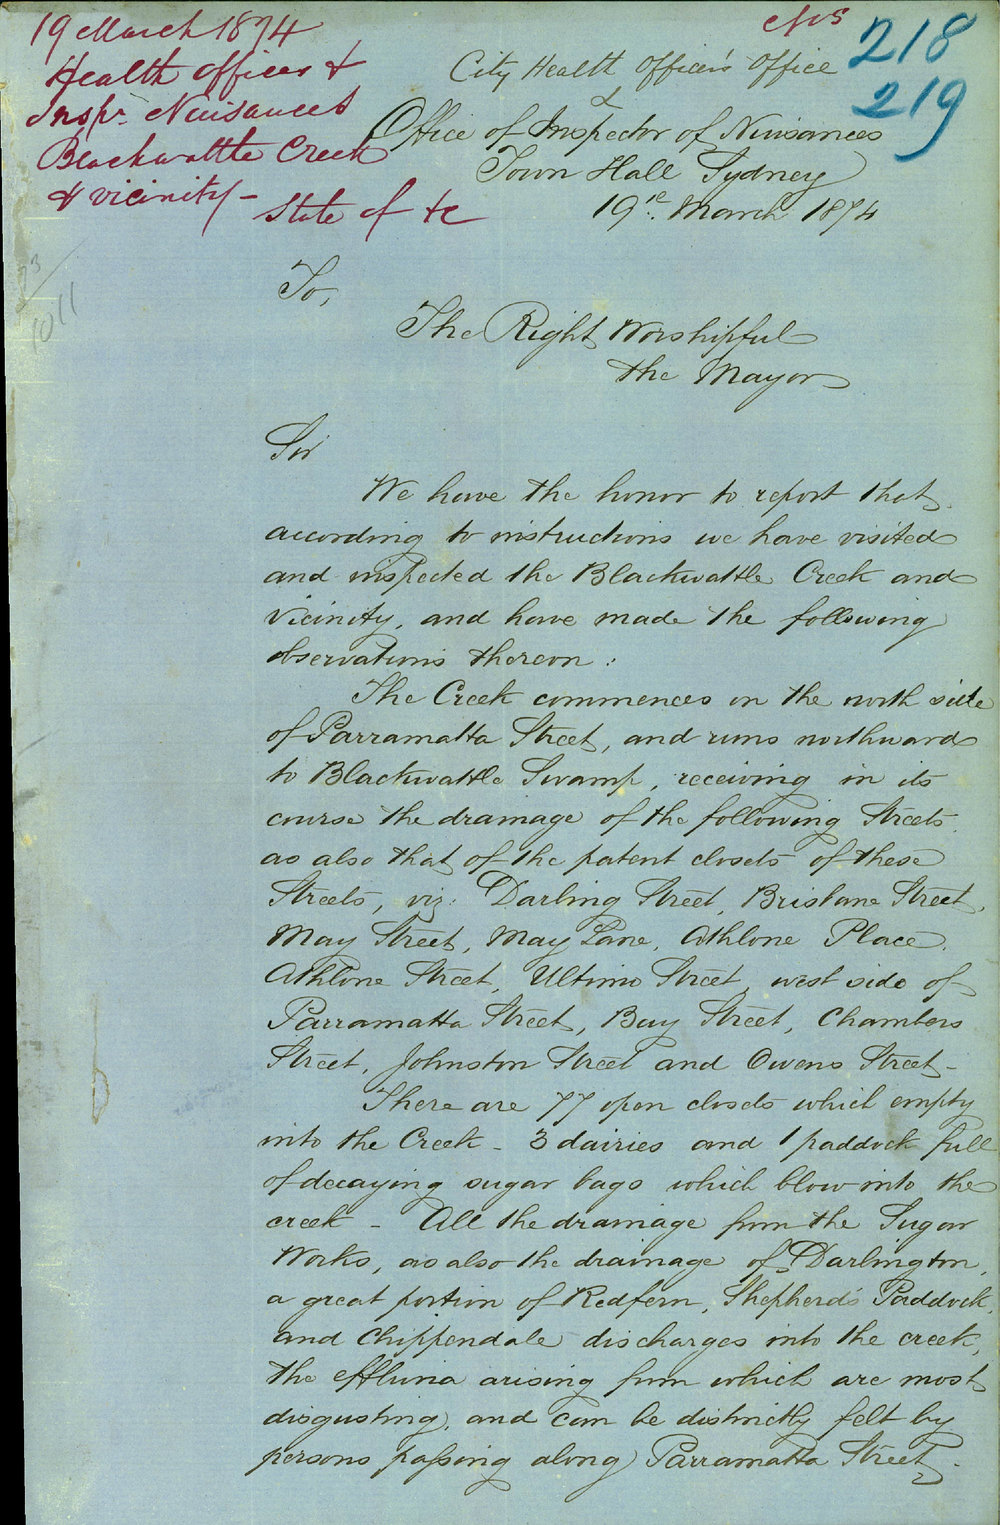 19 March 1874
Health Officer &
Inspr. Nuisances
Blackwattle Creek
& vicinity -
State of &c
218
219
City Health Officer's Office
&
Office of Inspector of Nuisances
Town Hall Sydney
19th March 1874
73/
1011
To,
The Right Worshipful
the Mayor
Sir
We have the honor to report that
according to instructions we have visited
and inspected the Blackwattle Creek and
vicinity, and have made the following
observations thereon :
The Creek commences on the north side
of Parramatta Street, and runs northward
to Blackwattle Swamp, receiving in its
course the drainage of the following Streets
as also that of the patent closets of these
Streets, viz: Darling Street, Brisbane Street,
May Street, May Lane, Athlone Place,
Athlone Street, Ultimo Street, west side of
Parramatta Street, Bay Street, Chambers
Street, Johnston Street and Owens Street -
There are 77 open closets which empty
into the Creek - 3 dairies and 1 paddock full
of decaying sugar bags which blow into the
creek - All the drainage from the Sugar
Works, as also the drainage of Darlington,
a great portion of Redfern, Shepherd's Paddock,
and Chippendale discharges into the creek,
the effluvia arising from which are most
disgusting, and can be distinctly felt by
persons passing along Parramatta Street -